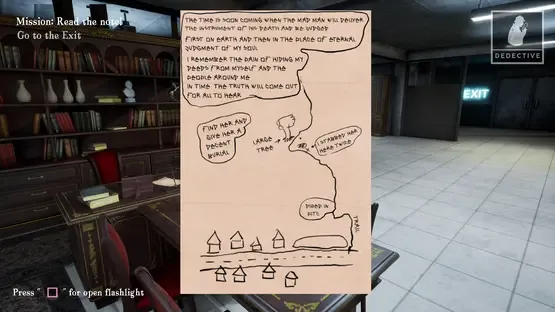 Mission: Read the note!
Go to the Exit
THE TIME IS SOON COMING WHEN THE MAD MAN WILL DELIVER
THE INSTRUMENT OF HIS DEATH AND BE JUDGED
FIRST ON EARTH AND THEN IN THE PLACE OF ETERNAL
JUDGMENT OF MY SOUL
I REMEMBER THE PAIN OF HIDING MY
DEEDS FROM MYSELF AND THE
PEOPLE AROUND ME
IN TIME THE TRUTH WILL COME OUT
FOR ALL TO HEAR
DEDECTIVE
EXIT
FIND HER AND
GIVE HER A
DECENT
BURIAL
LARGE
TREE
I STABBED HER
HERE TWICE
TRAIL
Press " " for open flashlight